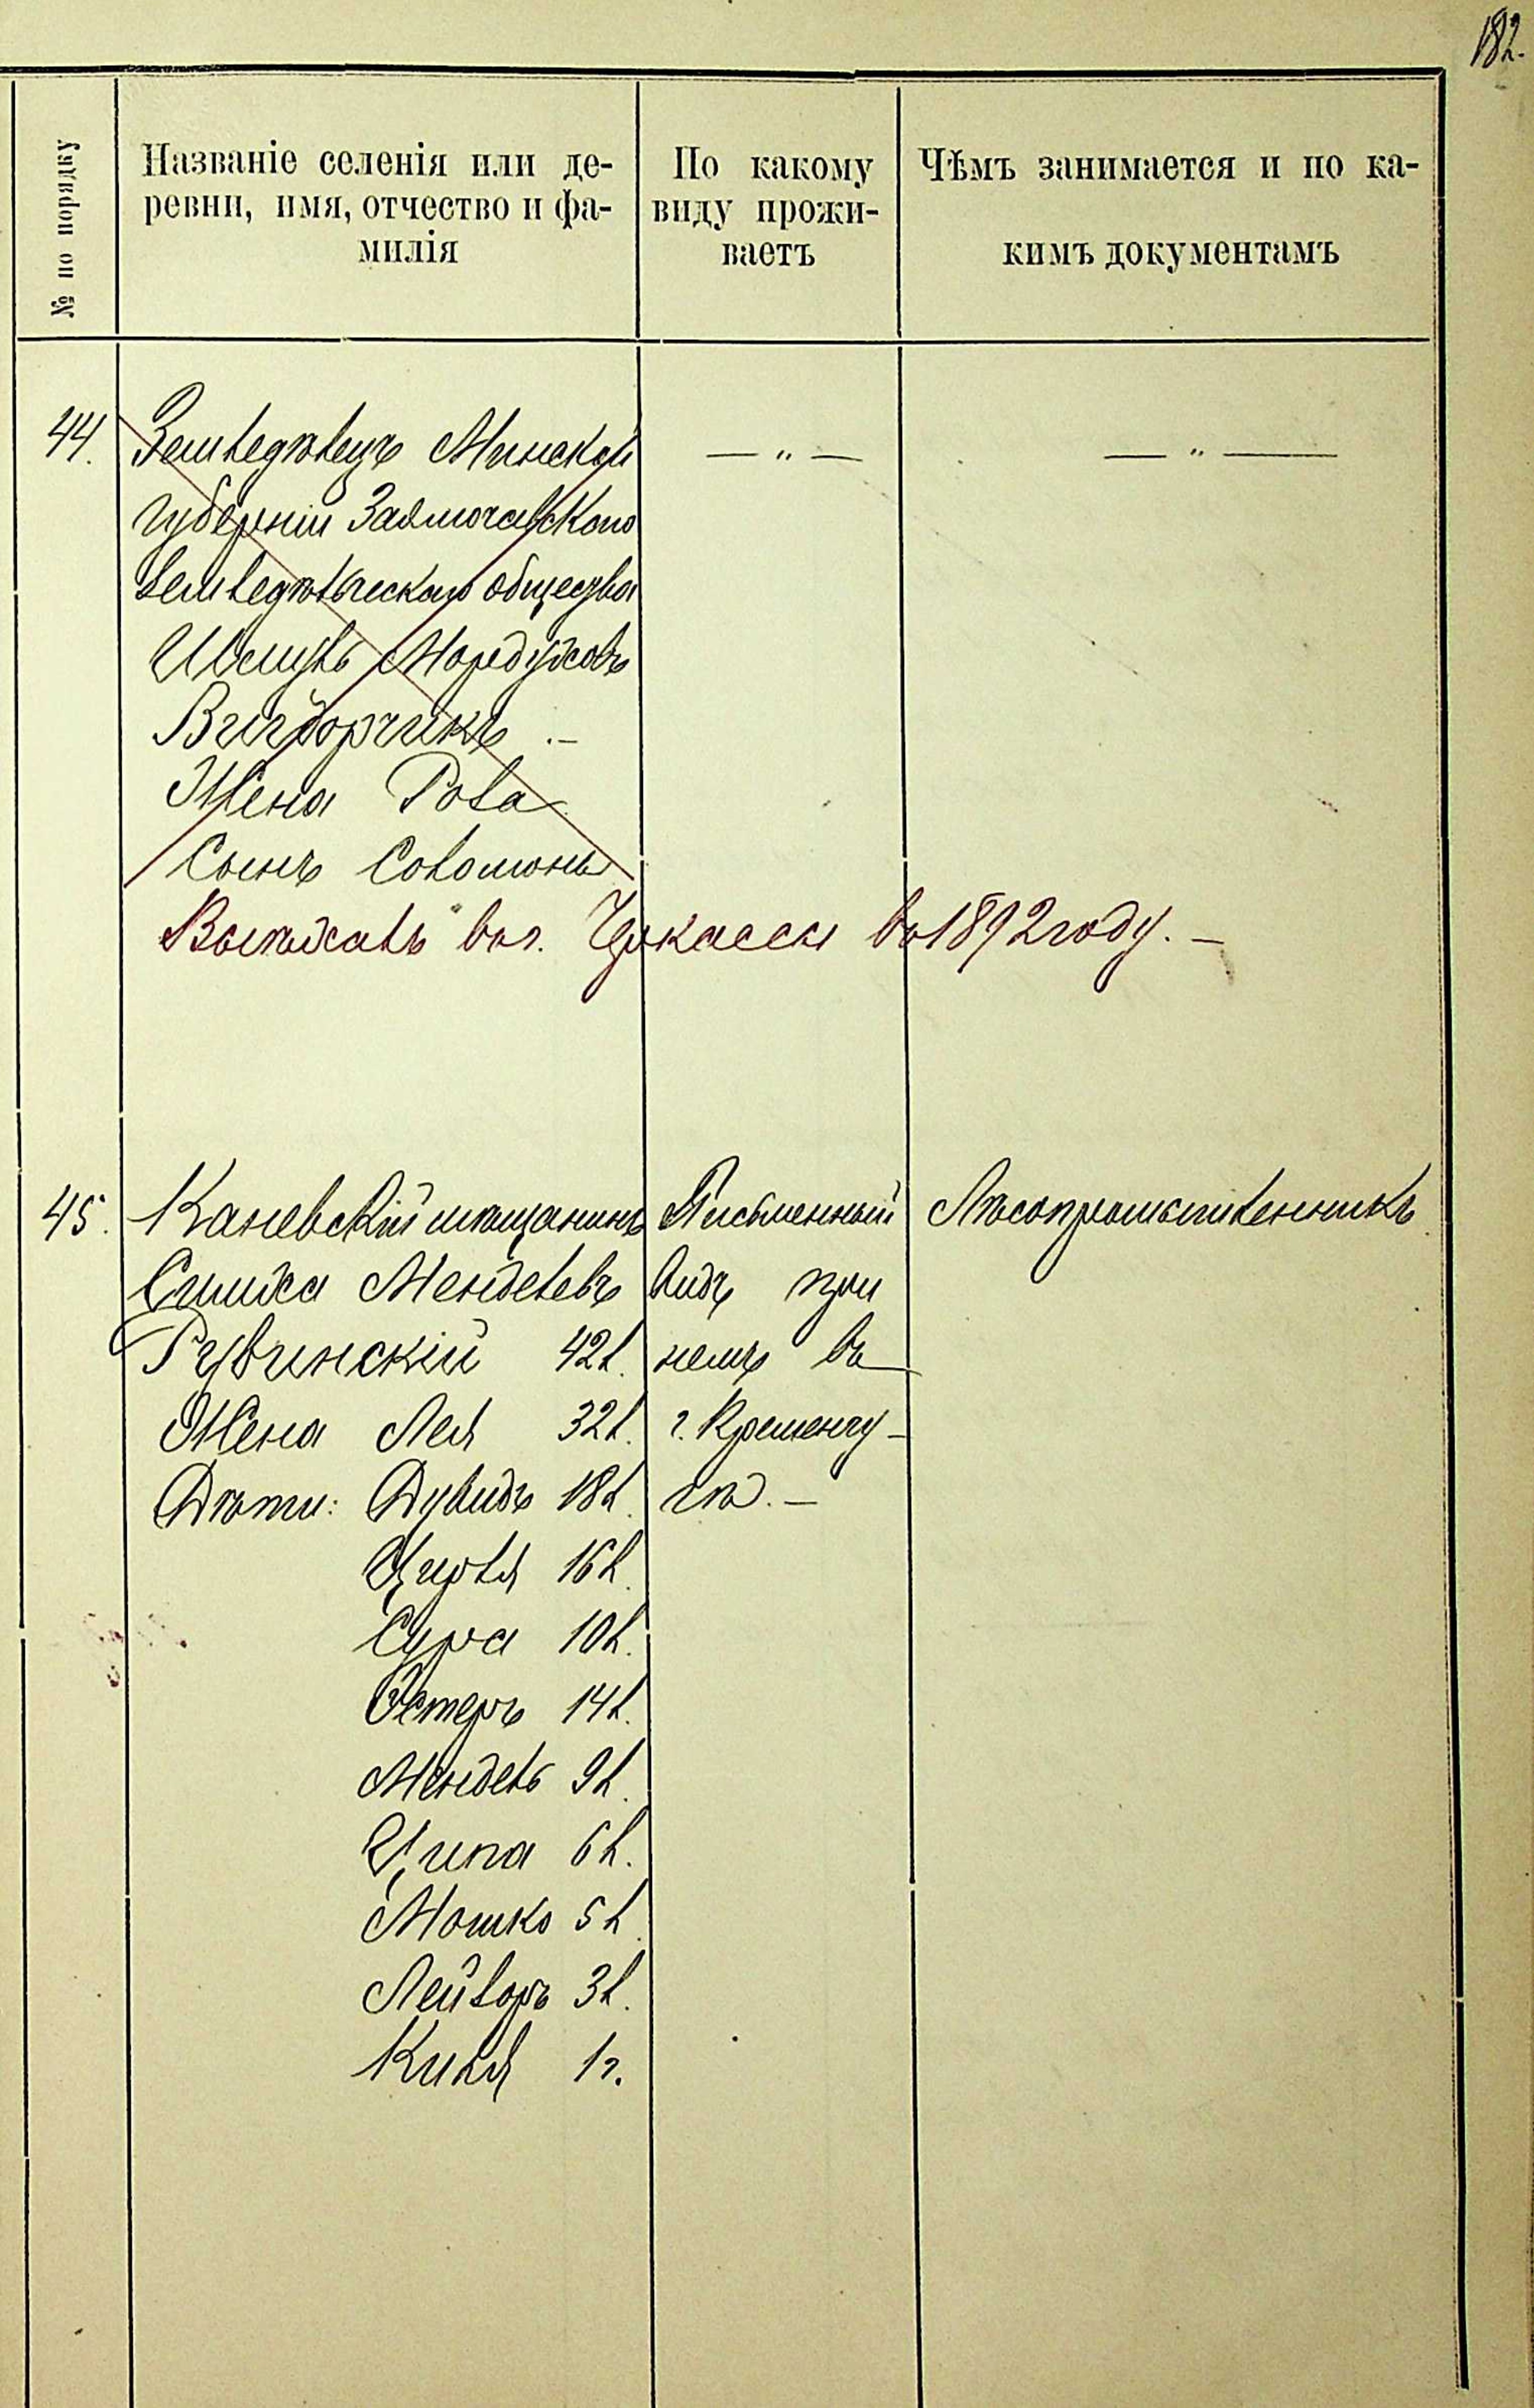 182.
№ по порядку
Названіе селенія или де-
ревни, имя, отчество и фа-
милія
По какому
виду прожи-
ваетъ
Чѣмъ занимается и по ка-
кимъ документамъ
44.
Земледѣлецъ Минской
губерніи
земледѣльческаго общества
Шмуль Мордуховъ
Вигдорчикъ .–
Жена Рова
Сынъ Соломонъ
— „ —
— „ —
Выѣхалъ въ г. Черкассы въ 1892 году. –
45.
Каневскій мѣщанинъ
Симха Менделевъ
Рувинскій 42 л.
Жена Лея 32 л.
Дѣти: Дувидъ 18 л.
Цирля 16 л.
Сура 10 л.
Эстеръ 14 л.
Мендель 9 л.
Ципа 6 л.
Мошко 5 л.
Лейзоръ 3 л.
1 г.
Письменный
видъ при
немъ въ
г. Кременчу-
гѣ. –
Лѣсопромышленникъ